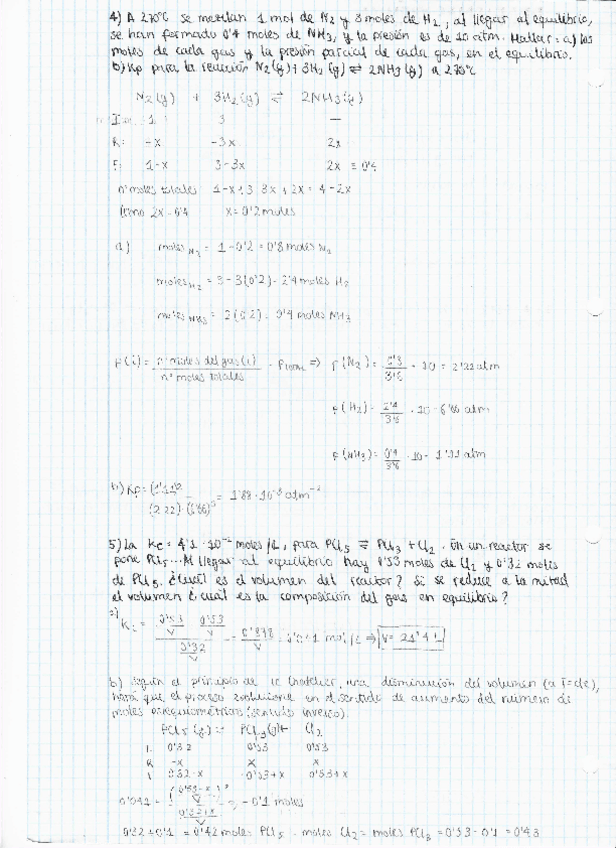 4) A 270ºC se mezclan 1 mol de N2 y 3 moles de H2, al llegar al equilibrio,
se han formado 0'4 moles de NH3, y la presión es de 10 atm. Hallar: a) los
moles de cada gas y la presión parcial de cada gas, en el equilibrio.
b) Kp para la reacción N2(g) + 3H2(g) ⇌ 2NH3(g) a 270ºC
N2(g) + 3H2(g) ⇌ 2NH3(g)
1 3 —
R: -x -3x 2x
E: 1-x 3-3x 2x = 0'4
nº moles totales 1-x+3-3x+2x = 4-2x
Como 2x = 0'4 x = 0'2 moles
a) moles N2 = 1-0'2 = 0'8 moles N2
moles H2 = 3-3(0'2) = 2'4 moles H2
moles NH3 = 2(0'2) = 0'4 moles NH3
P(i) = nº moles del gas(i) / nº moles totales · Ptotal ⇒ P(N2) = 0'8/3'6 · 10 = 2'22 atm
P(H2) = 2'4/3'6 · 10 = 6'66 atm
P(NH3) = 0'4/3'6 · 10 = 1'11 atm
b) Kp = (1'11)² / (2'22)·(6'66)³ = 1'88·10⁻³ atm⁻²
5) La Kc = 4'1·10⁻² moles/l, para PCl5 ⇌ PCl3 + Cl2. En un reactor se
pone PCl5... Al llegar al equilibrio hay 0'53 moles de Cl2 y 0'32 moles
de PCl5. ¿Cuál es el volumen del reactor? Si se reduce a la mitad
el volumen ¿cuál es la composición del gas en equilibrio?
a) Kc = 0'53/V · 0'53/V / 0'32/V = 0'878/V = 0'041 mol/l ⇒ V = 21'4 l
b) Según el principio de Le Chatelier, una disminución del volumen (a T=cte),
hará que el proceso evolucione en el sentido de aumento del número de
moles estequiométricas (sentido inverso).
PCl5(g) ⇌ PCl3(g) + Cl2
I. 0'32 0'53 0'53
R -x x x
0'32-x 0'53+x 0'53+x
0'041 = -0'1 moles
0'32+0'1 = 0'42 moles PCl5 moles Cl2 = moles PCl3 = 0'53-0'1 = 0'43